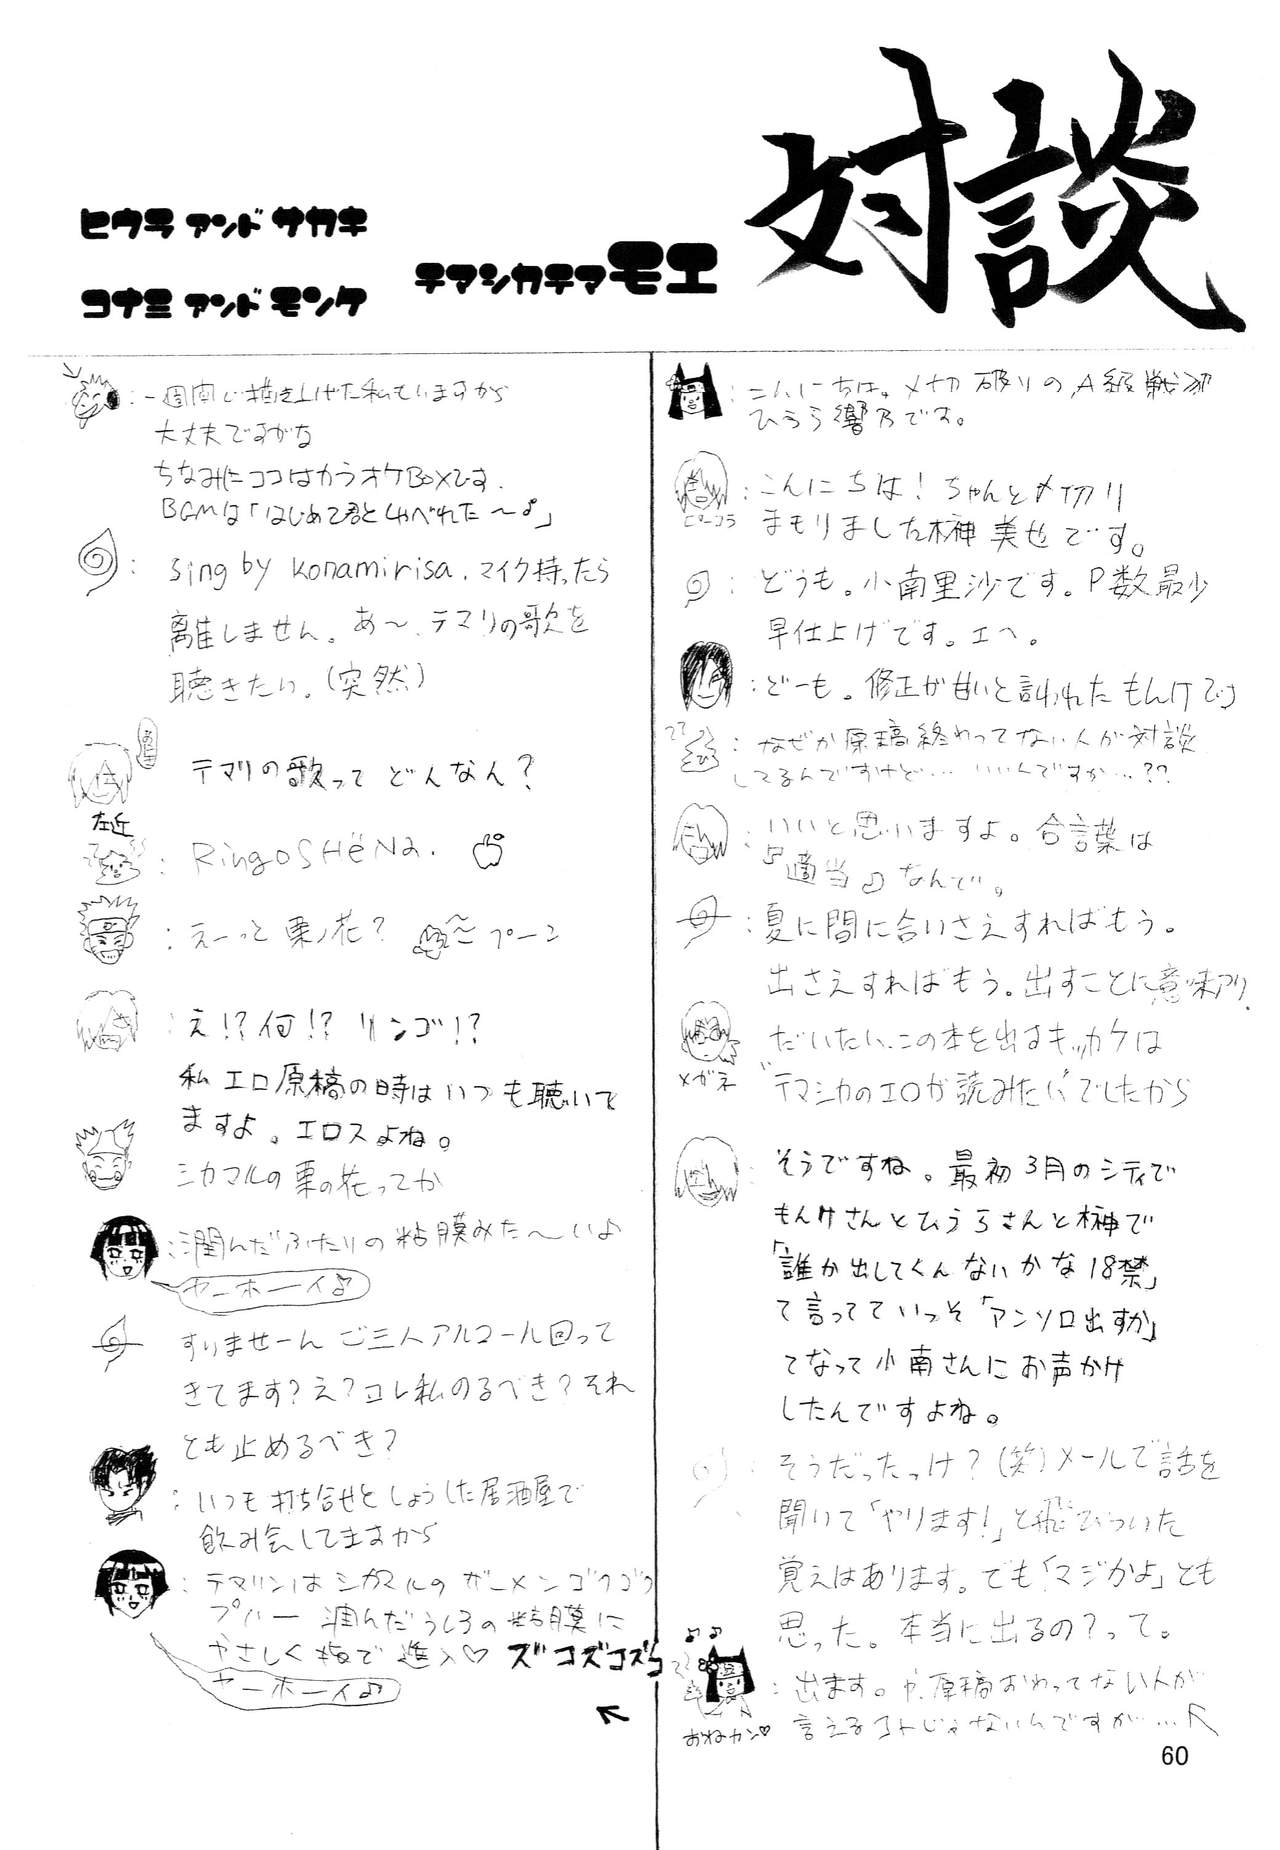 対談
テマシカテマモエ
ヒウラ アンド サカキ
コナミ アンド モンケ
:こんにちは。〆切破りのA級戦犯
ひうら響乃です。
こんにちは!ちゃんと〆切り
まもりました榊 美也です。
ピーコラ
:どうも。小南里沙です。P数最少
早仕上げです。エヘ。
:どーも。修正が甘いと言われたもんけです
:なぜか原稿終わってない人が対談
してるんですけど…いいんですか…??
:いいと思いますよ。合言葉は
『適当♪』なんで。
:夏に間に合いさえすればもう。
出さえすればもう。出すことに意味アリ。
だいたい、この本を出すキッカケは
"テマシカのエロが読みたい"でしたから
メガネ
:そうですね。最初3月のシティで
もんけさんとひうらさんと榊で
「誰か出してくんないかな18禁」
て言ってていっそ「アンソロ出すか」
てなって小南さんにお声かけ
したんですよね。
:そうだったっけ?(笑)メールで話を
聞いて「やります!」と飛びついた
覚えはあります。でも「マジかよ」とも
思った。本当に出るの?って。
♪♪
:出ます。や、原稿おわってない人が
言えるコトじゃないんですが…
おねカン♡
:一週間で描き上げた私ていますから
大丈夫ですがな
ちなみにココはカラオケBoxです.
BGMは「はじめて君としゃべれた〜♪」
:sing by konamirisa.マイク持ったら
離しません。あ〜、テマリの歌を
聴きたい。(突然)
テマリの歌って どんなん?
左近
:RingoSHëNa.
:えーっと 栗ノ花? 〜プーン
:え!?何!?リンゴ!?
私 エロ原稿の時はいつも聴いて
ますよ。エロスよね。
シカマルの栗の花ってか
:潤んだふたりの粘膜みた〜いよ
ヤーホーイ♪
すいませーん ご三人アルコール回って
きてます?え?コレ私のるべき?それ
とも止めるべき?
:いつも打ち合せとしょうした居酒屋で
飲み会してますから
:テマリンはシカマルのザーメンゴクゴク
プハー 潤んだうしろの粘膜に
やさしく指で進入♡ズコズコズコ
ヤーホーイ♪
60